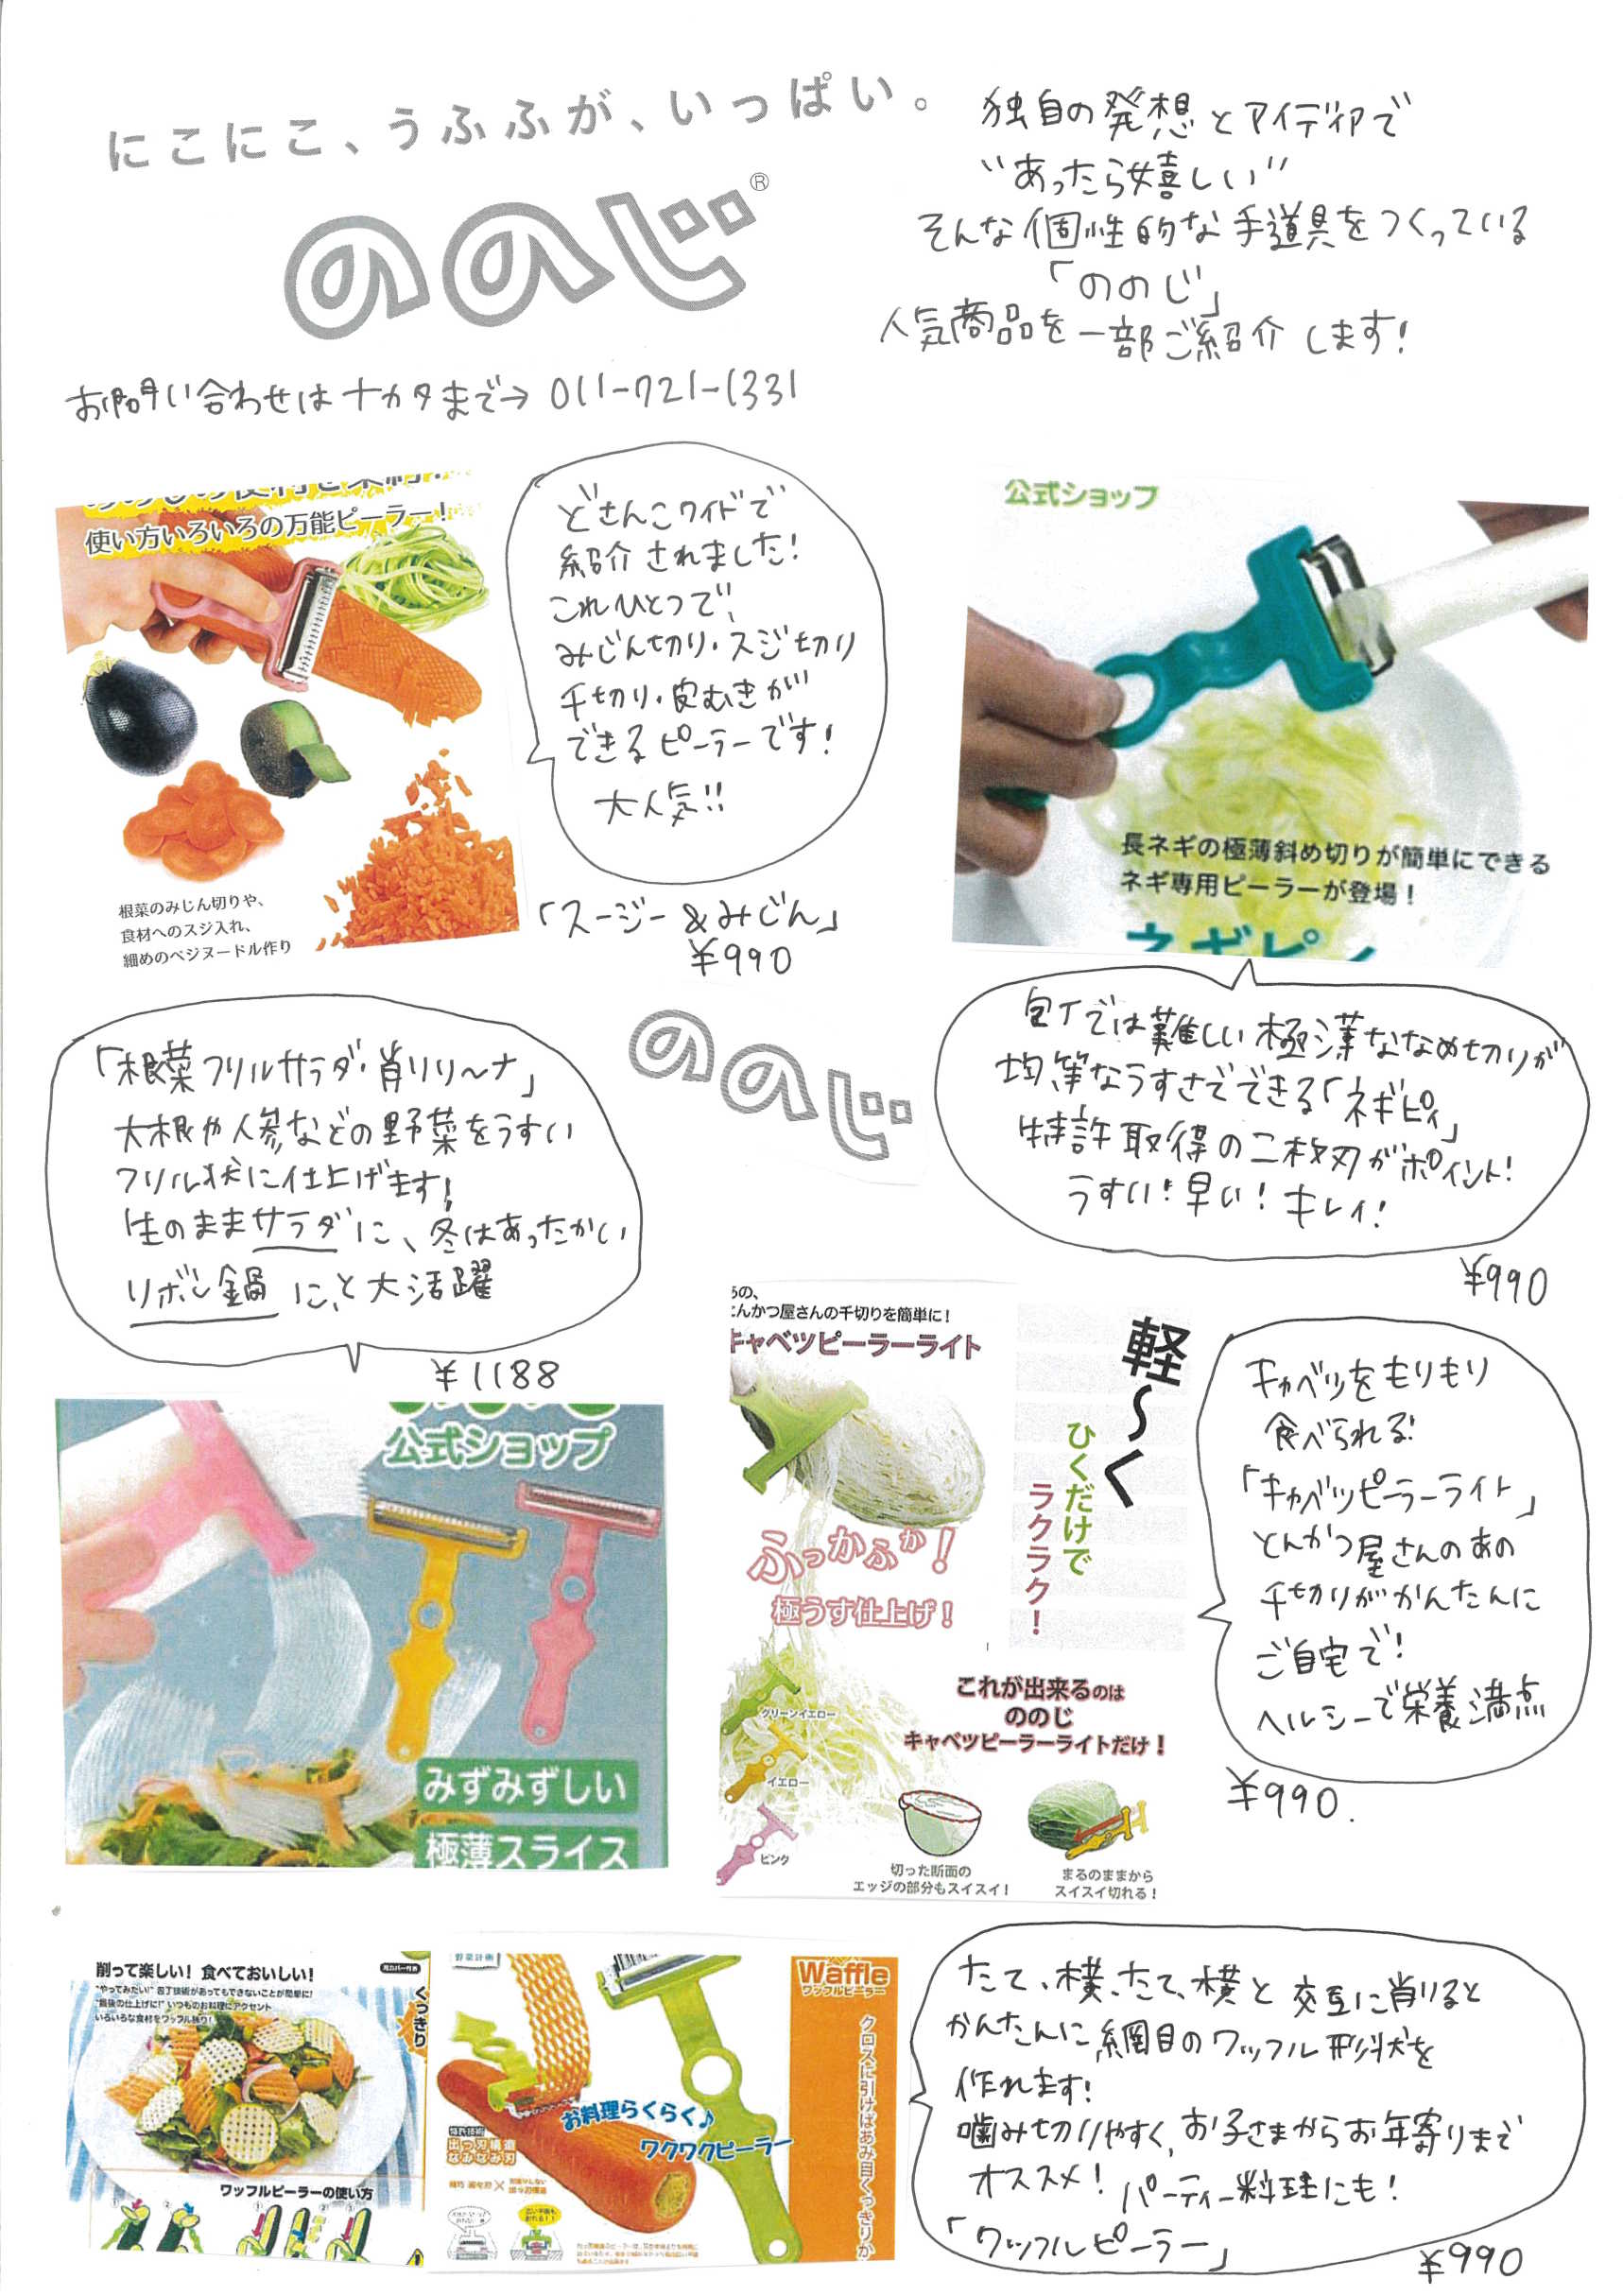 にこにこ、うふふが、いっぱい。
ののじ®
独自の発想とアイディアで
"あったら嬉しい"
そんな個性的な手道具をつくっている
「ののじ」
人気商品を一部ご紹介します!
お問い合わせはナカタまで→ 011-721-1331
使い方いろいろの万能ピーラー!
根菜のみじん切りや、
食材へのスジ入れ、
細めのベジヌードル作り
どさんこワイドで
紹介されました!
これひとつで、
みじん切り・スジ切り
千切り・皮むきが
できるピーラーです!
大人気!!
「スージー&みじん」
¥990
公式ショップ
長ネギの極薄斜め切りが簡単にできる
ネギ専用ピーラーが登場!
ネギピィ
包丁では難しい極薄ななめ切りが
均等なうすさでできる「ネギピィ」
特許取得の二枚刃がポイント!
うすい!早い!キレイ!
¥990
ののじ
「根菜フリルサラダ・削リリ〜ナ」
大根や人参などの野菜をうすい
フリル状に仕上げます!
生のままサラダに、冬はあったかい
リボン鍋に、と大活躍
¥1188
公式ショップ
みずみずしい
極薄スライス
とんかつ屋さんの千切りを簡単に!
キャベツピーラーライト
軽〜く
ひくだけで
ラクラク!
ふっかふか!
極うす仕上げ!
グリーンイエロー
イエロー
ピンク
これが出来るのは
ののじ
キャベツピーラーライトだけ!
切った断面の
エッジの部分もスイスイ!
まるのままから
スイスイ切れる!
キャベツをもりもり
食べられる!
「キャベツピーラーライト」
とんかつ屋さんのあの
千切りがかんたんに
ご自宅で!
ヘルシーで栄養満点
¥990.
削って楽しい! 食べておいしい!
"やってみたい!" 包丁技術があってもできないことが簡単に!
"最後の仕上げに!" いつものお料理にアクセント
いろいろな食材をワッフル削り!
くっきり
ワッフルピーラーの使い方
① ② ① ② ③
野菜計画
お料理らくらく♪
ワクワクピーラー
特許技術
出っ刃構造
なみなみ刃
Waffle
ワッフルピーラー
クロスに引けばあみ目くっきりか
たて、横、たて、横と交互に削ると
かんたんに網目のワッフル形状を
作れます!
噛み切りやすく、お子さまからお年寄りまで
オススメ! パーティー料理にも!
「ワッフルピーラー」
¥990